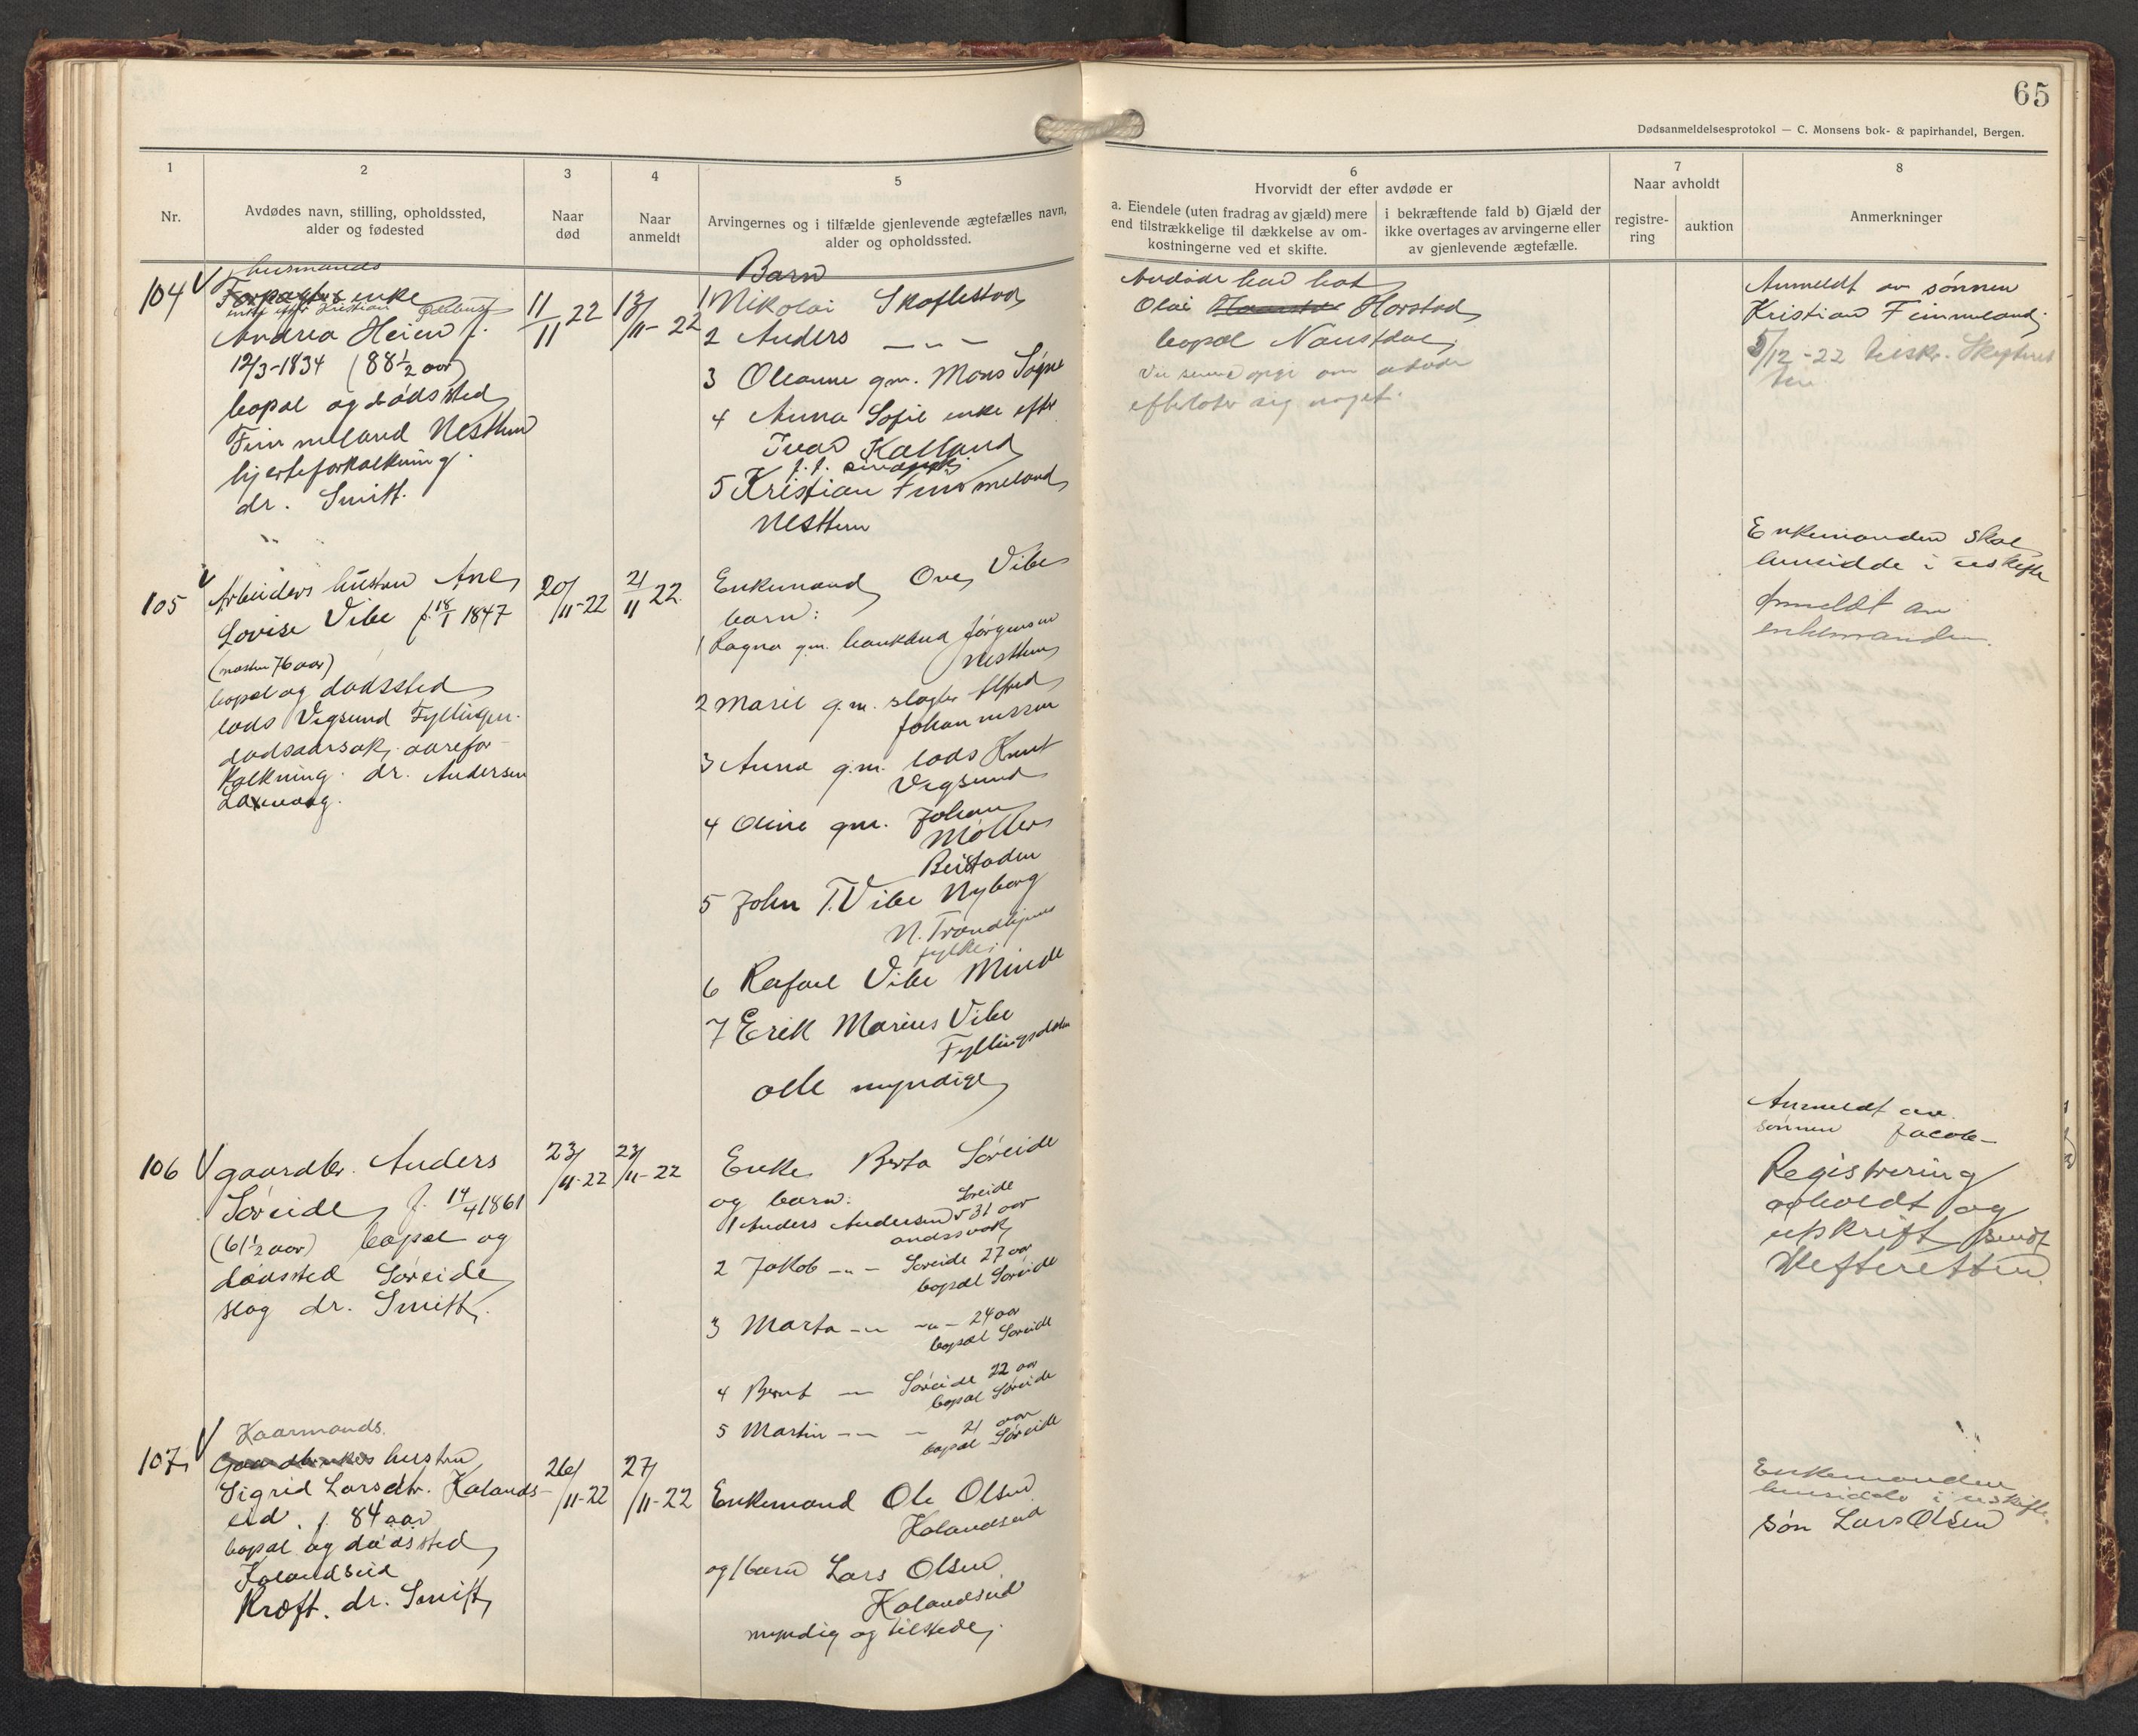 65
Dødsanmeldelsesprotokol — C. Monsens bok- & papirhandel, Bergen.
1
Nr.
2
Avdødes navn, stilling, opholdssted,
alder og fødested
3
Naar
død
4
Naar
anmeldt
5
Arvingernes og i tilfælde gjenlevende ægtefælles navn,
alder og opholdssted.
6
Hvorvidt der efter avdøde er
a. Eiendele (uten fradrag av gjæld) mere
end tilstrækkelige til dækkelse av om-
kostningerne ved et skifte.
i bekræftende fald b) Gjæld der
ikke overtages av arvingerne eller
av gjenlevende ægtefælle.
7
Naar avholdt
registre-
ring
auktion
8
Anmerkninger
104
husmands
enke
enke efter Kristian
Andrea Heien f.
12/3-1834 (88½ aar)
bopæl og dødssted
Fimmeland Nesttun
hjerteforkalkning.
dr. Smitt.
11/11 22
13/11-22
Barn
1 Nikolai Skaflestad
2 Anders —"—
3 Oleanne gm. Mons Søgne
4 Anna Sofie enke efter
Ivar Kalland
5 Kristian Fimmeland
Nesttun
Avdøde har hat
Olai Horstad
bopæl Naustdal
om avdøde
efterlater sig noget.
Anmeldt av sønnen
Kristian Fimmeland
5/12-22
105
Arbeiders hustru Ane
Lovise Vibe f. 18/1 1847
(næsten 76 aar)
bopæl og dødssted
lods Vigsund Fyllingen.
dødsaarsak, aarefor-
kalkning. dr. Andersen
Laxevaag.
20/11-22
21/11 22.
Enkemand Ove Vibe
barn:
1 Ragna gm. Jørgensen
Nesttun
2 Marie g.m. slagter Alfred
Johannessen
3 Anna g.m. lods Knut
Vigsund
4 Oline gm. Johan
Møller
5 John T. Vibe Nyborg
N. Trondhjems
fylke.
6 Rafael Vibe Minde
7 Erik Marius Vibe
Fyllingsdalen
alle myndige
Enkemanden skal
hensidde i uskifte
Anmeldt av
enkemanden.
106
gaardbr. Anders
Søreide f. 14/4 1861
(61½ aar) bopæl og
dødssted Søreide
slag dr. Smitt.
23/11-22
23/11-22
Enke Berta Søreide
og barn:
1 Anders Andersen Søreide 31 aar
andssvak
2 Jakob —"— Søreide 27 aar
bopæl Søreide
3 Marta —"— —"— 24 aar
bopæl Søreide
4 Bernt —"— Søreide 22 aar
bopæl Søreide
5 Martin —"— — 21 aar
bopæl Søreide
Anmeldt av
sønnen Jacob—
Registrering
avholdt og
utskrift sendt
skifteretten.
107
Kaarmands
Gaardbrukers hustru
Sigrid Larsdtr. Kalands-
eid. f. 84 aar
bopæl og dødssted
Kalandseid
Kræft. dr. Smitt
26/11-22
27/11-22
Enkemand Ole Olsen
Kalandseid
og 1 barn Lars Olsen
Kalandseid
myndig og tilstede.
Enkemanden
hensidder i uskifte.
søn Lars Olsen